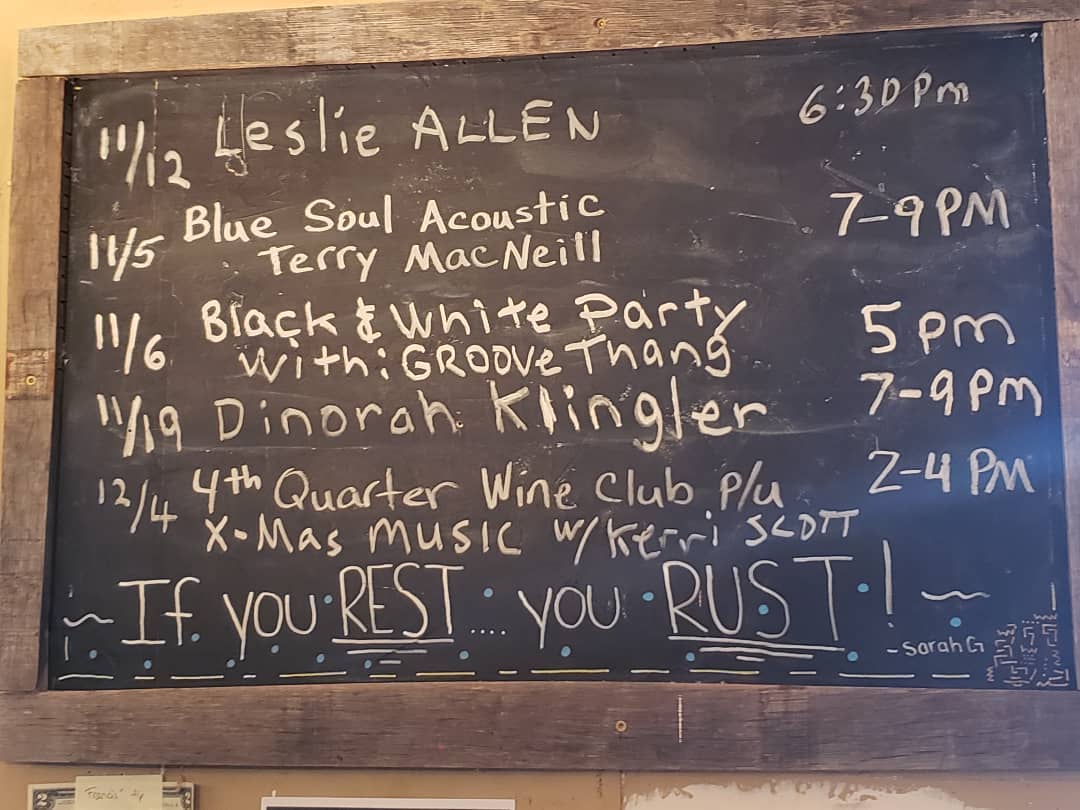 11/12 Leslie ALLEN 6:30 Pm
11/5 Blue Soul Acoustic 7-9 PM
Terry MacNeill
11/6 Black & White Party 5 pm
With: GROOVE Thang
11/19 Dinorah Klingler 7-9 pm
12/4 4th Quarter Wine Club P/u 2-4 PM
X-Mas MUSIC W/ Kerri SCOTT
~ If you REST.... you RUST! ~
- Sarah G
2